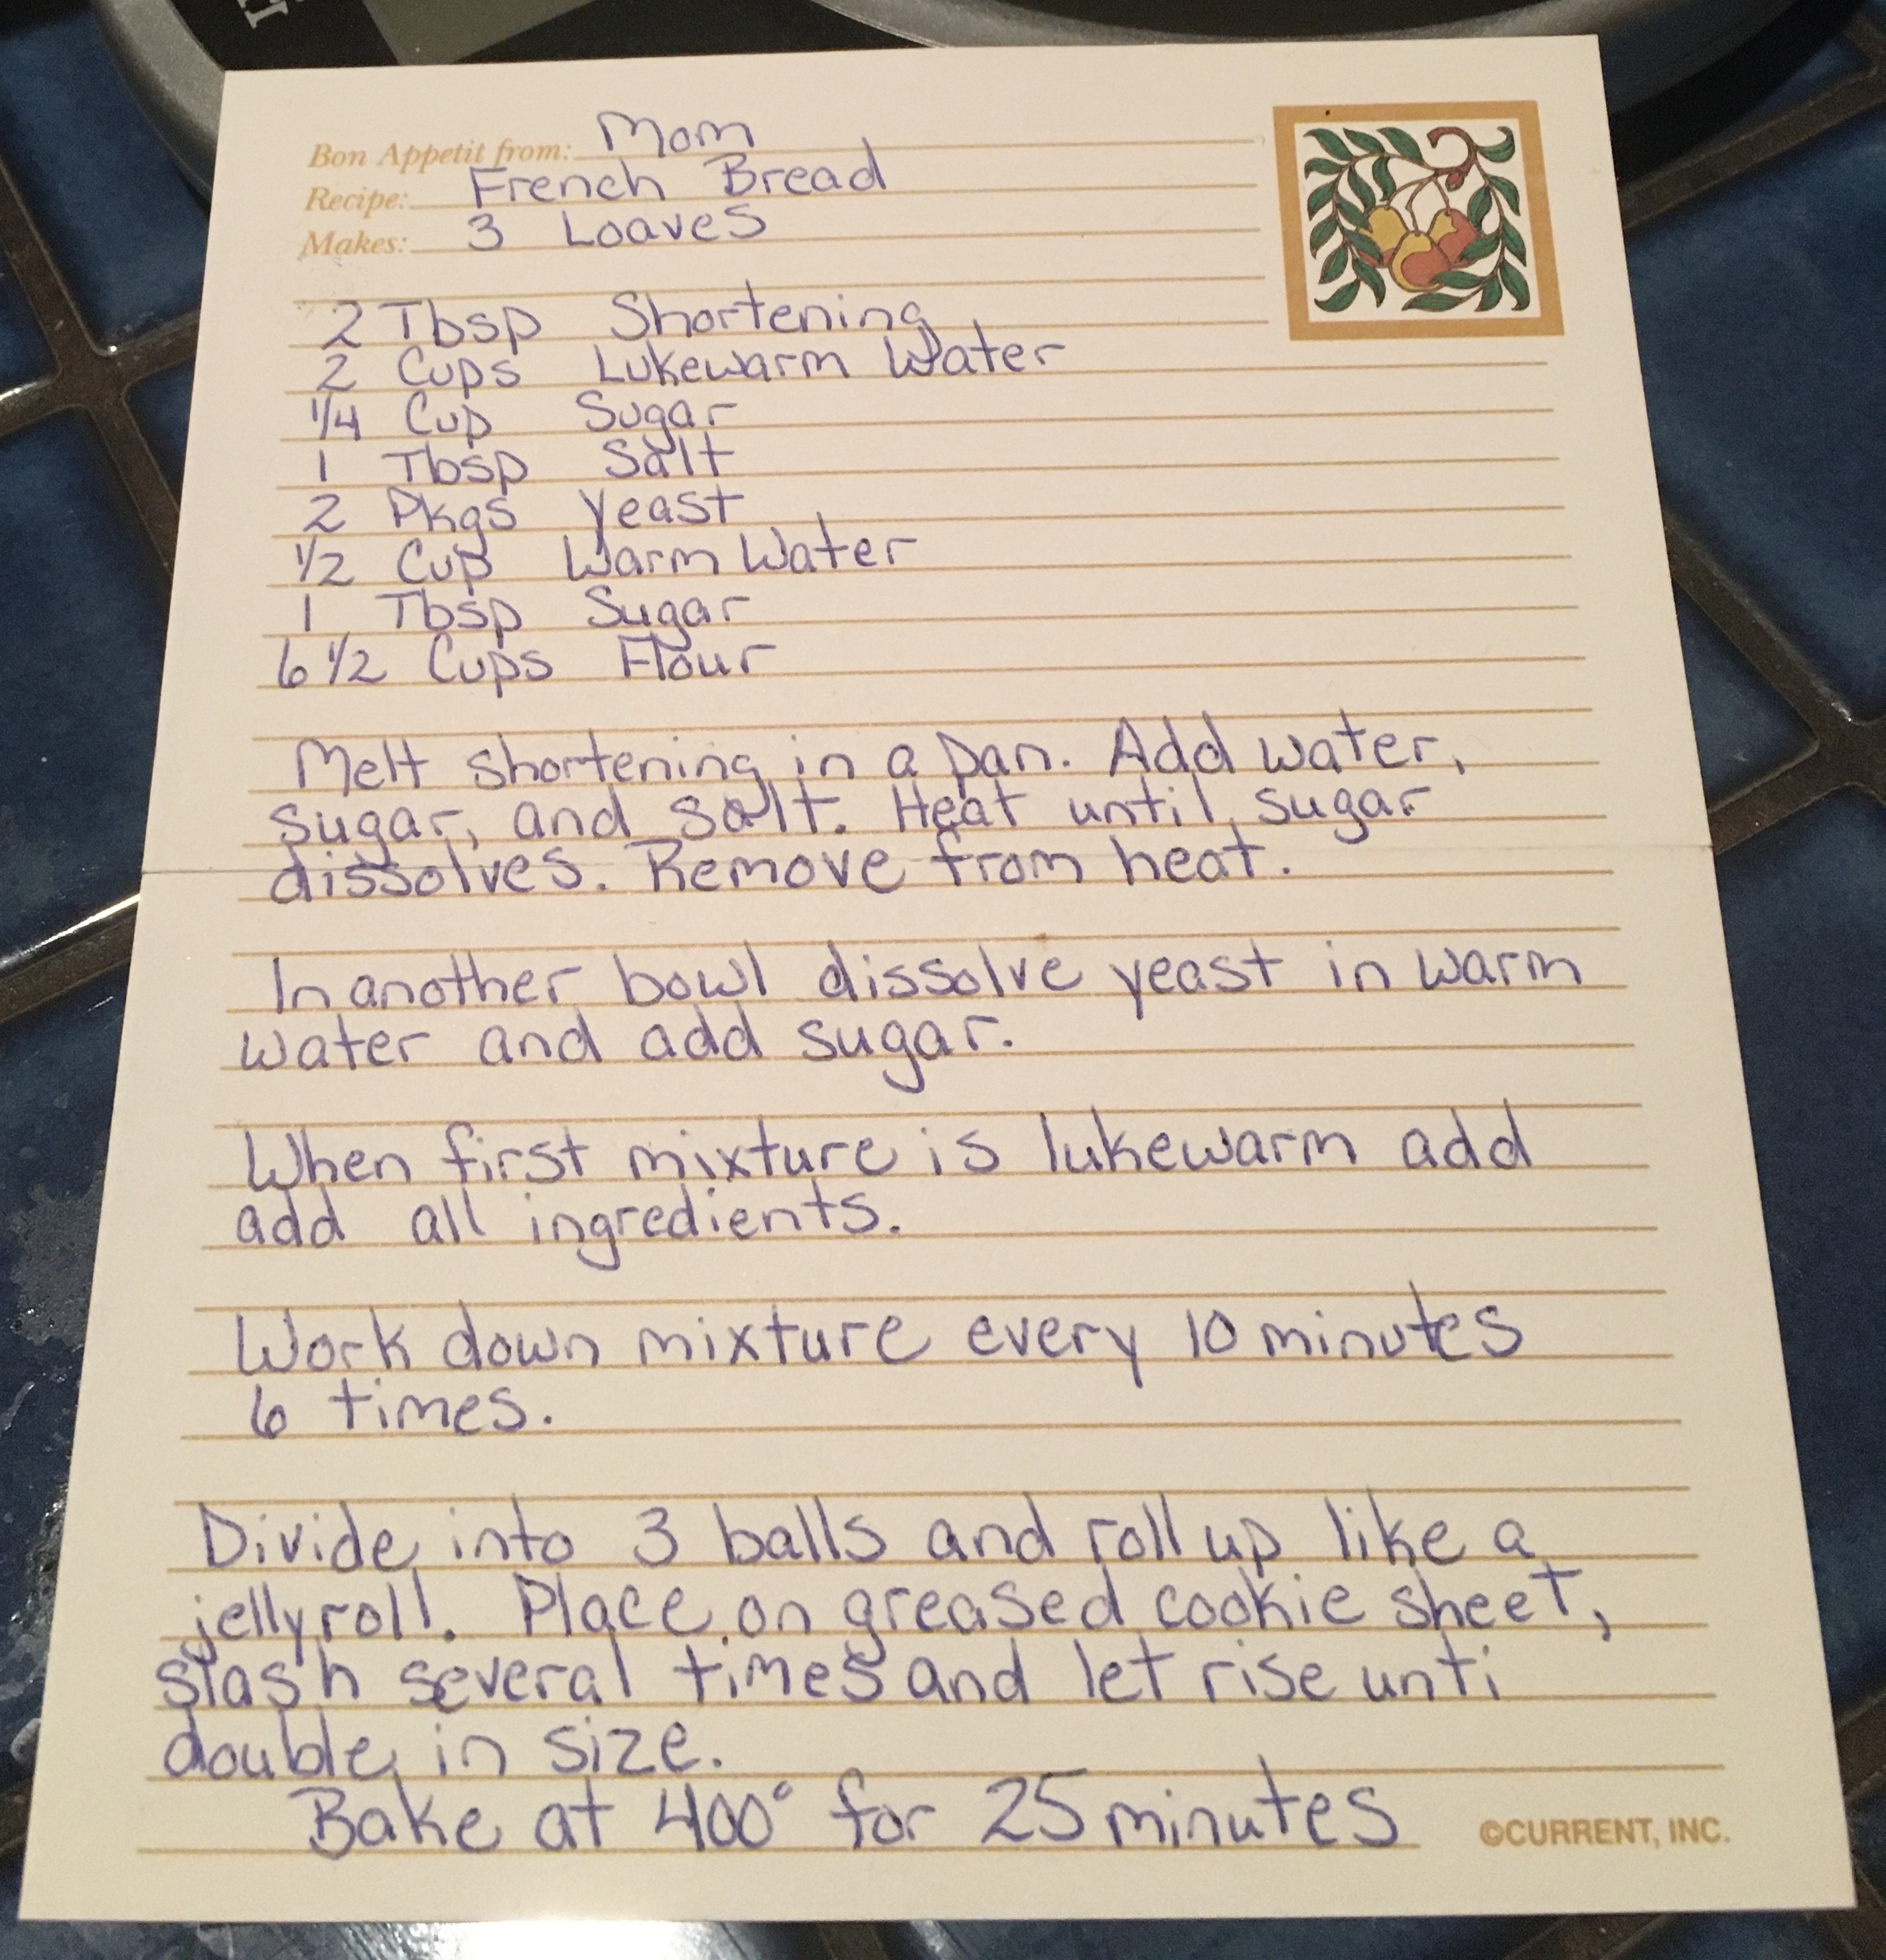 Bon Appetit from: Mom
Recipe: French Bread
Makes: 3 Loaves
2 Tbsp Shortening
2 Cups Lukewarm Water
1/4 Cup Sugar
1 Tbsp Salt
2 Pkgs Yeast
1/2 Cup Warm Water
1 Tbsp Sugar
6 1/2 Cups Flour
Melt shortening in a pan. Add water,
sugar, and salt. Heat until sugar
dissolves. Remove from heat.
In another bowl dissolve yeast in warm
water and add sugar.
When first mixture is lukewarm add
add all ingredients.
Work down mixture every 10 minutes
6 times.
Divide into 3 balls and roll up like a
jellyroll. Place on greased cookie sheet,
slash several times and let rise unti
double in size.
Bake at 400° for 25 minutes
©CURRENT, INC.